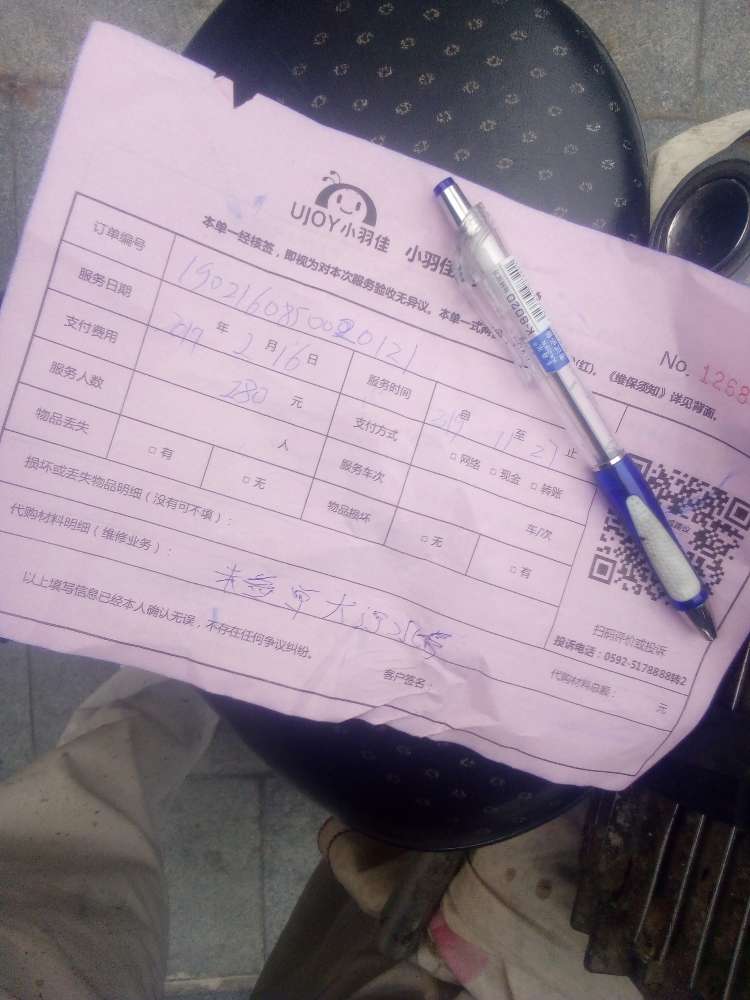 UJOY小羽佳 小羽佳
本单一经核签，即视为对本次服务验收无异议。本单一式两 (红)，《维保须知》详见背面。
No. 1268
订单编号 190216085000121
服务日期 2019 年 2 月 16 日 服务时间 至 止
支付费用 280 元 支付方式 □网络 □现金 □转账
服务人数 人 服务车次 车/次
物品丢失 □有 □无 物品损坏 □无 □有
损坏或丢失物品明细（没有可不填）：
代购材料明细（维修业务）：
扫码评价或投诉
投诉电话：0592-5178888转2
代购材料总额： 元
以上填写信息已经本人确认无误，不存在任何争议纠纷。
客户签名：
K-8020